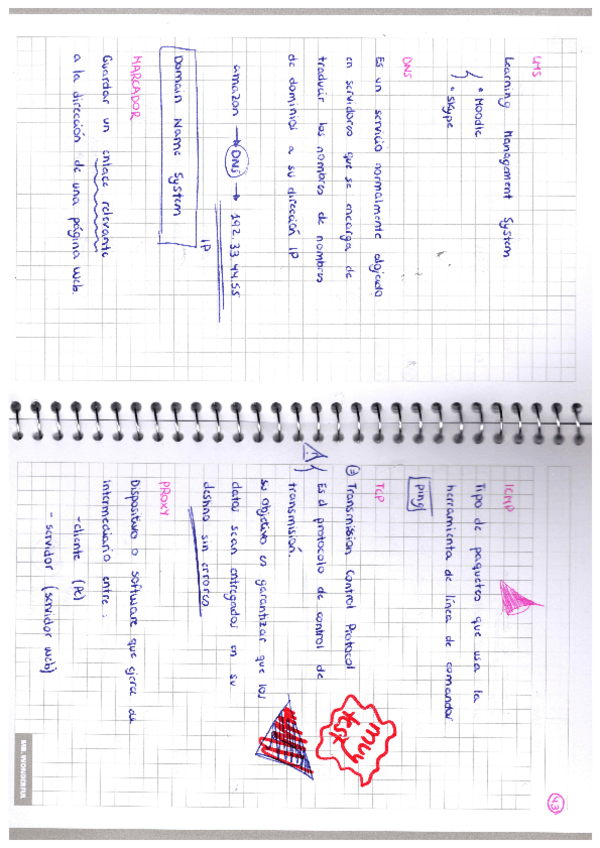 LMS
Learning Management System
• Moodle
• Skype
DNS
Es un servicio normalmente alojado
en servidores que se encarga de
traducir los nombres de nombres
de dominios a su dirección IP
amazon → DNS → 192.33.44.55
IP
Domain Name System
MARCADOR
Guardar un enlace relevante
a la dirección de una página web.
43
ICMP
Tipo de paquetes que usa la
herramienta de línea de comandos
ping
TCP
③ Transmission Control Protocol
Es el protocolo de control de
transmisión.
su objetivo es garantizar que los
datos sean entregados en su
destino sin errores
muy
test
PROXY
Dispositivo o software que ejerce de
intermediario entre:
- cliente (PC)
- servidor (servidor web)
MR. WONDERFUL